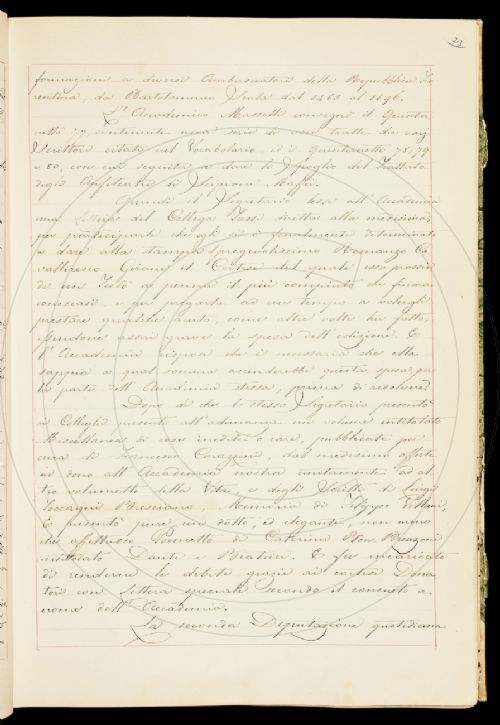 21
formazioni a diversi Ambasciatori della Repubblica Fio
rentina, da Bartolommeo Scala dal 1465 al 1496.
L'Accademico Masselli consegnò il Quinter
netto 77, contenente una serie di voci tratte da varj
Scrittori citati nel Vocabolario, ed i Quinternetti 78, 79
e 80, con cui seguita a dare lo Spoglio del Trattato
degli Anfiteatri di Scipione Maffei.
Quindi il Segretario lesse all'Accademia
una Lettera del Collega Tassi diretta alla medesima,
per parteciparle che egli si è finalmente determinato
a dare alla stampa il pregevolissimo Romanzo Ca
valleresco Girone il Cortese del quale esso possie
de un Testo a penna il più compiuto che finora
conoscasi, e per pregarla ad un tempo a volergli
prestare qualche aiuto, come altre volte ha fatto,
essendone assai grave la spesa dell'edizione. E
l'Accademia rispose che è necessario che ella
sappia a qual somma ascenderebbe questa spesa per
la parte dell'Accademia stessa, prima di risolvere.
Dopo di che lo stesso Segretario presentò
ai Colleghi presenti all'adunanza un volume intitolato
Miscellanea di cose inedite o rare, pubblicate per
cura di Francesco Corazzini, dal medesimo offerto
in dono all'Accademia nostra unitamente ad al
tro volumetto della Vita e degli Scritti di Luigi
Toccagni Bresciano, Memoria di Filippo
E presentò pure un dotto, ed elegante, non meno
che affettuoso Poemetto di Caterina Bon Brenzoni
intitolato Dante e Beatrice. E fu incaricato
di renderne le debite grazie ai cortesi Dona
tori con lettera speciale secondo il consueto a
nome dell'Accademia.
La seconda Deputazione quotidiana